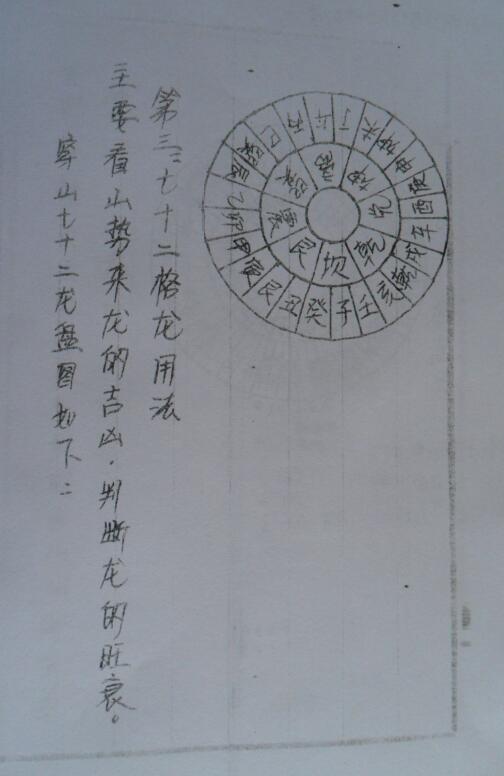 离坤兑乾坎艮震巽
午丁未坤申庚酉辛戌乾亥壬子癸丑艮寅甲卯乙辰巽巳丙
第三:七十二格龙用法
主要看山势来龙的吉凶,判断龙的旺衰。
穿山七十二龙盘图如下: